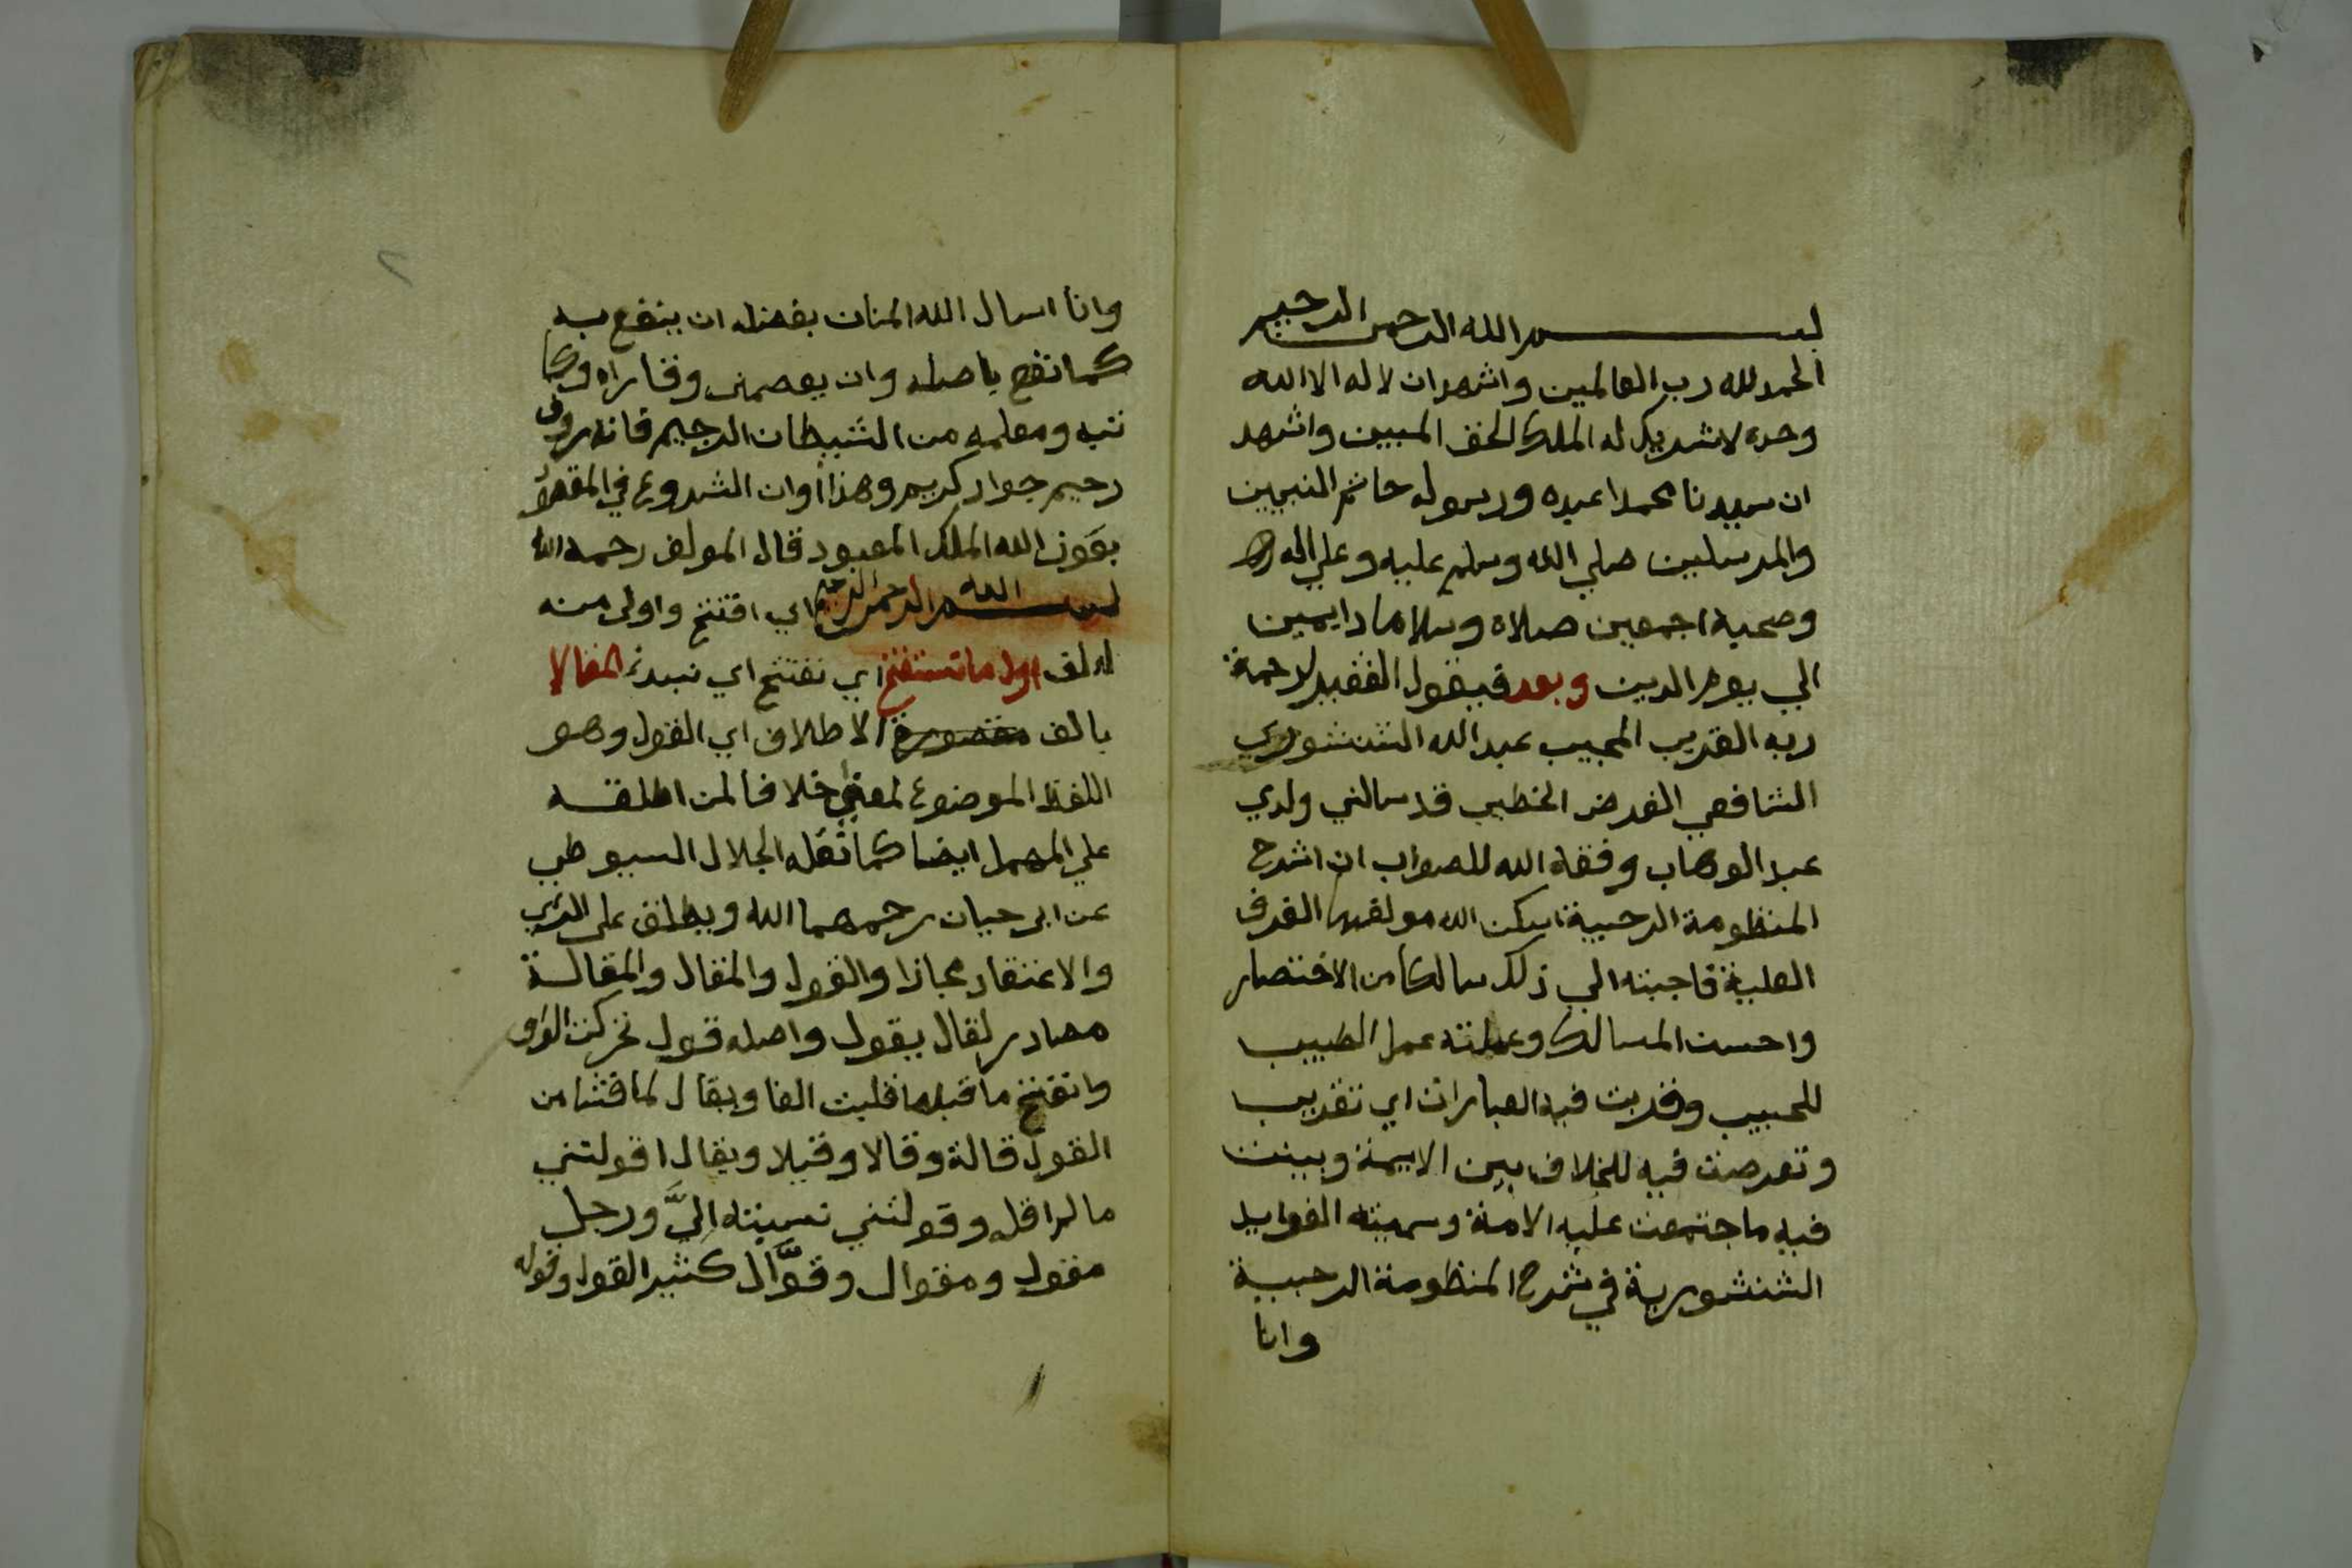 بسم الله الرحمن الرحيم
الحمد لله رب العالمين واشهد ان لا اله الا الله
وحده لا شريك له الملك الحق المبين واشهد
ان سيدنا محمدا عبده ورسوله خاتم النبيين
والمرسلين صلي الله وسلم عليه وعلي اله
وصحبه اجمعين صلاة وسلاما دايمين
الي يوم الدين وبعد فيقول الفقير لرحمة
ربه القريب المجيب عبد الله الشنشوري
الشافعي الفرضي الخطيب قد سالني ولدي
عبد الوهاب وفقه الله للصواب ان اشرح
المنظومة الرحبية اسكن الله مولفها الغرف
العلية فاجبته الي ذلك سالكا من الاختصار
واحسن المسالك وعملته عمل الطبيب
للحبيب وقربت فيه العبارات اي تقريب
وتعرضت فيه للخلاف بين الايمة وبينت
فيه ما جتمعت عليه الامة وسميته الفوايد
الشنشورية في شرح المنظومة الرحبية
وانا
٢
وانا اسال الله المنان بفضله ان ينفع به
كما نفع باصله وان يعصمني وقاراه وكا
تبه ومعلمه من الشيطان الرجيم فانه روف
رحيم جواد كريم وهذا أوان الشروع في المقصود
بعون الله الملك المعبود قال المولف رحمه الله
بسم الله الرحمن الرحيم اي افتتح واولى منه
اولف اول ما نستفتح اي نفتتح اي نبدئ المقالا
بالف مقصورة الاطلاق اي القول وهو
اللفظ الموضوع لمعني خلافا لمن اطلقه
علي المهمل ايضا كما نقله الجلال السيوطي
عن ابي حيان رحمهما الله ويطلق علي الراي
والاعتقاد مجازا والقول والمقال والمقالة
مصادر لقال يقول واصله قول تحركت الواو
وانفتح ما قبلها قلبت الفا ويقال لما فشا من
القول قالة وقالا وقيلا ويقال اقولتني
ما لم اقل وقولتني نسبته اليَّ ورجل
مقول ومقوال وقوَّال كثير القول وقوله